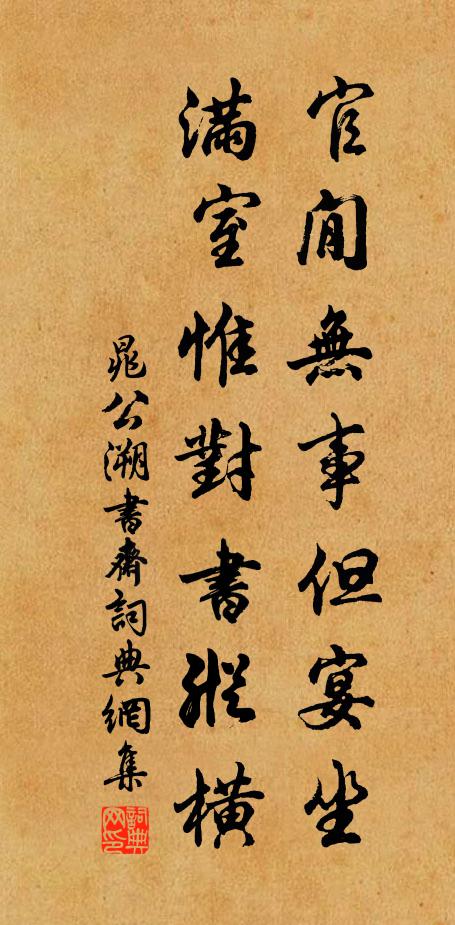 官閒無事但宴坐
滿室惟對書縱橫
晁公溯書齋詞典網集
詞典网印